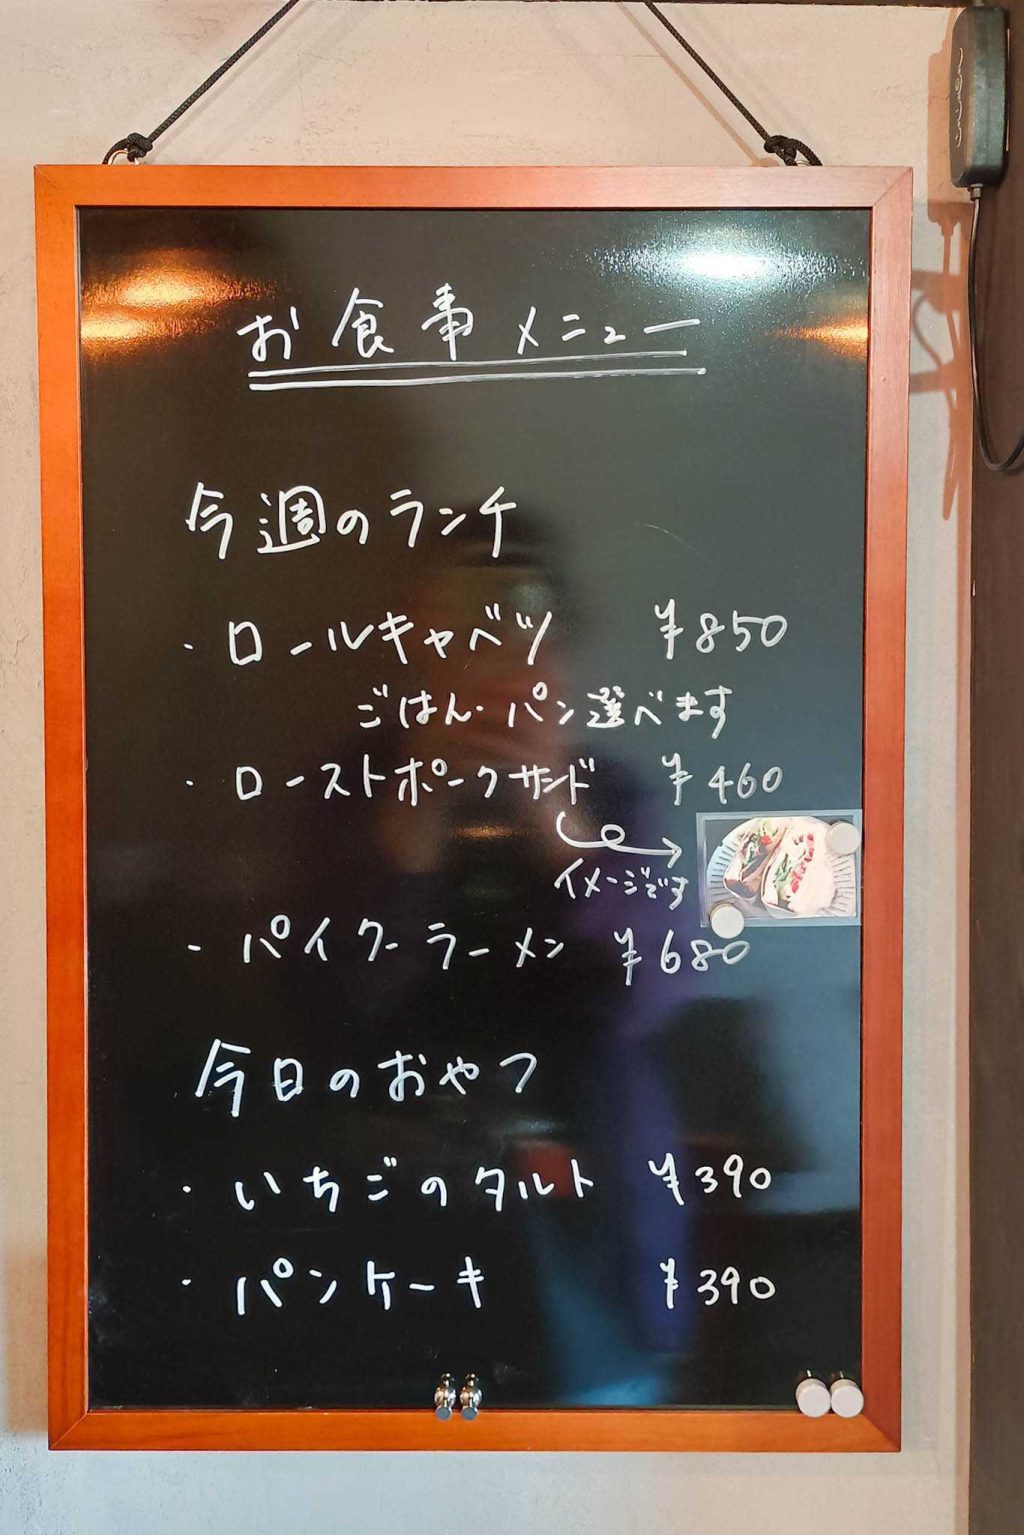 お食事メニュー
今週のランチ
・ロールキャベツ ¥850
ごはん・パン選べます
・ローストポークサンド ¥460
イメージです
・パイクーラーメン ¥680
今日のおやつ
・いちごのタルト ¥390
・パンケーキ ¥390